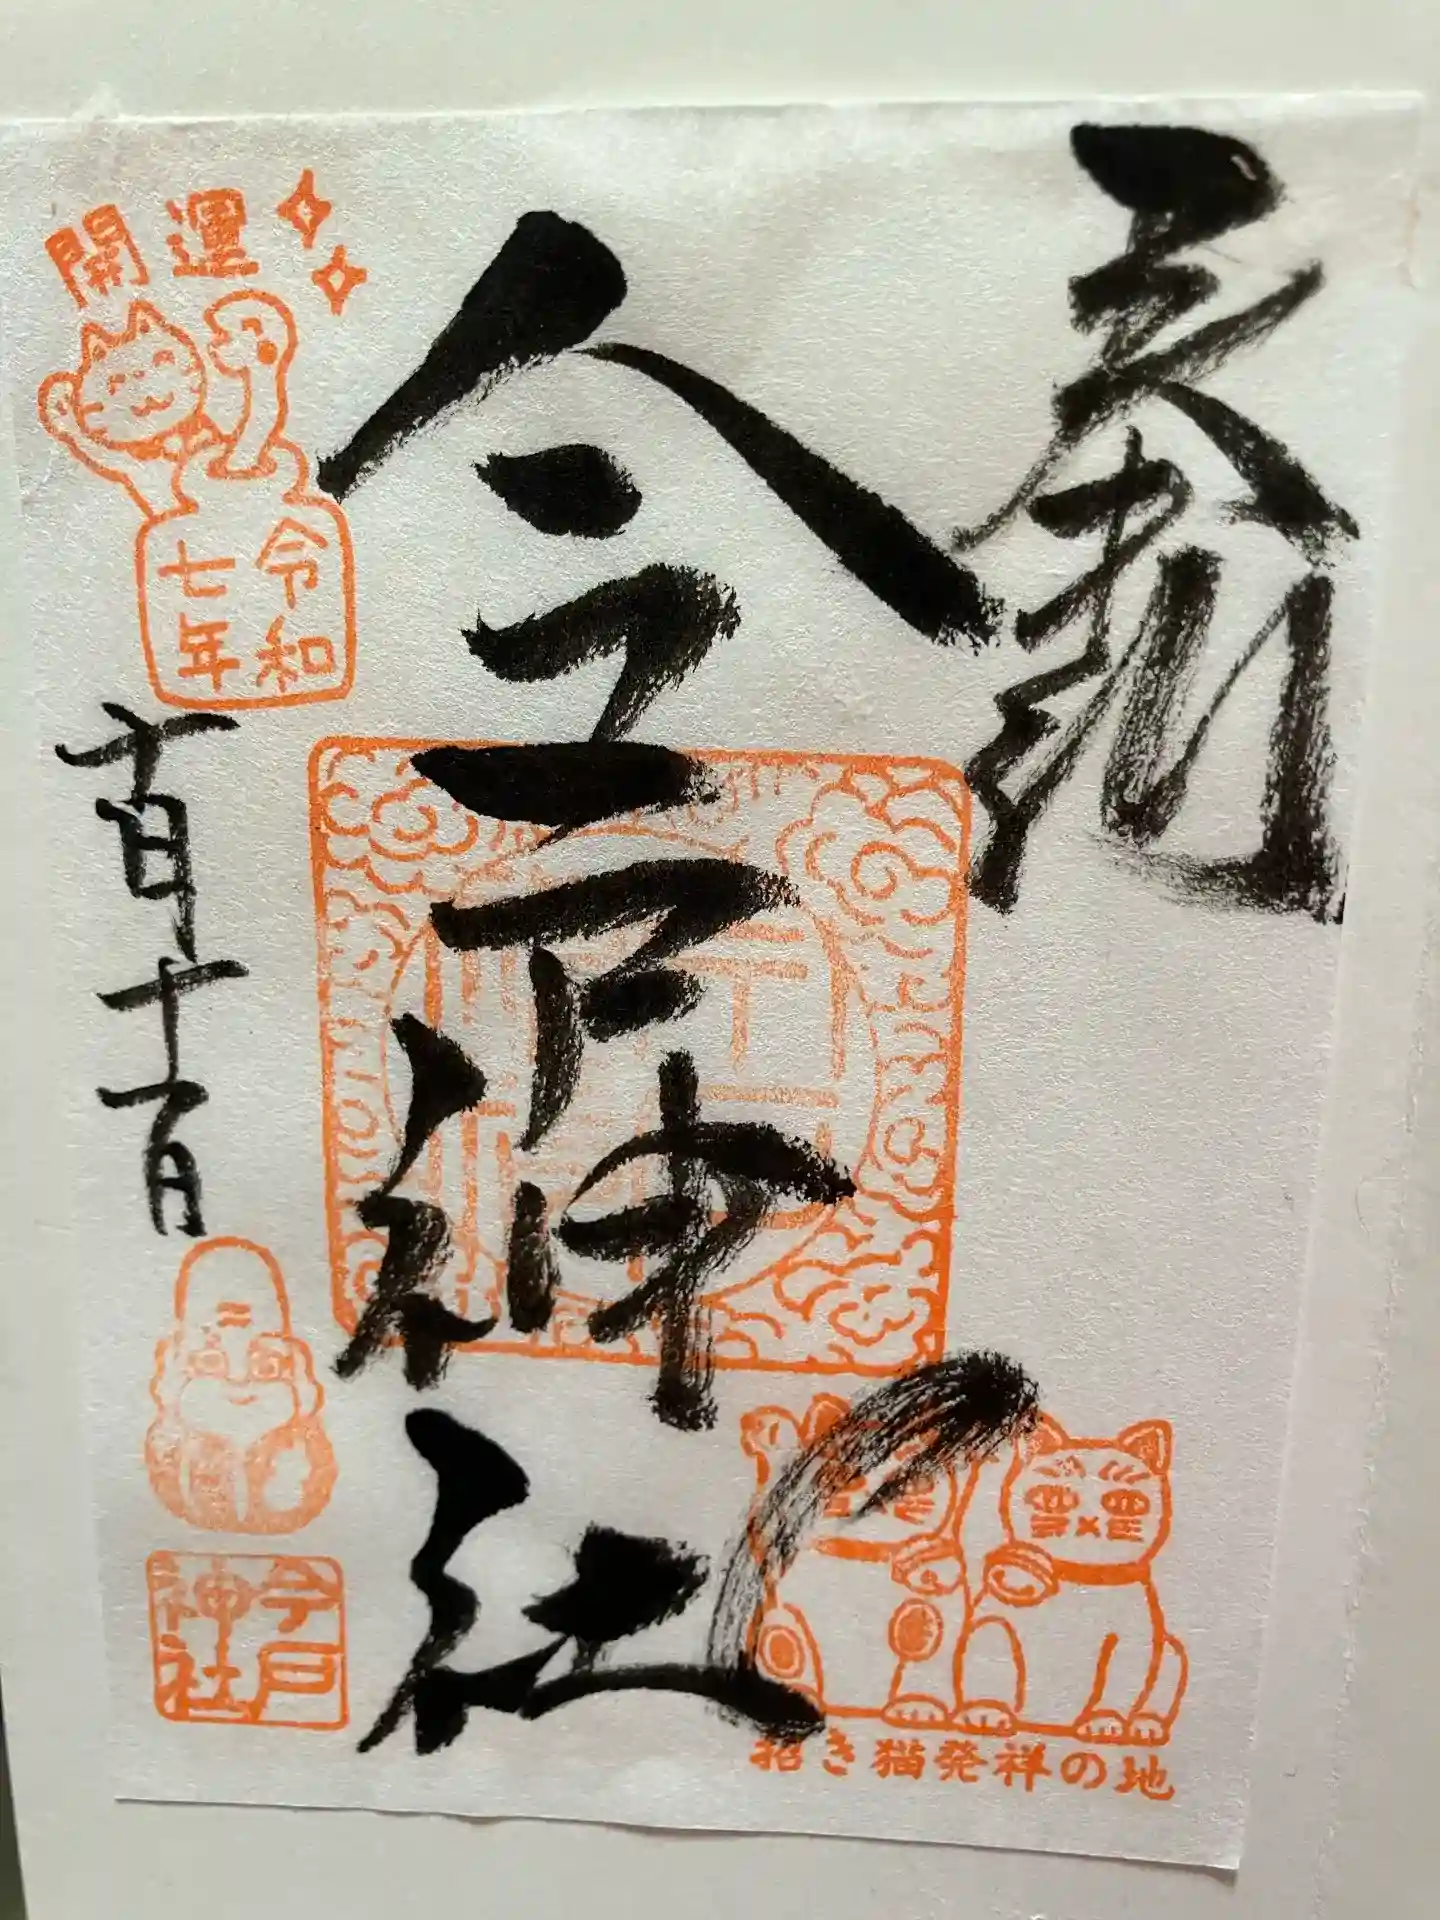 奉拝
今戸神社
開運
令和
七年
今戸
神社
招き猫発祥の地